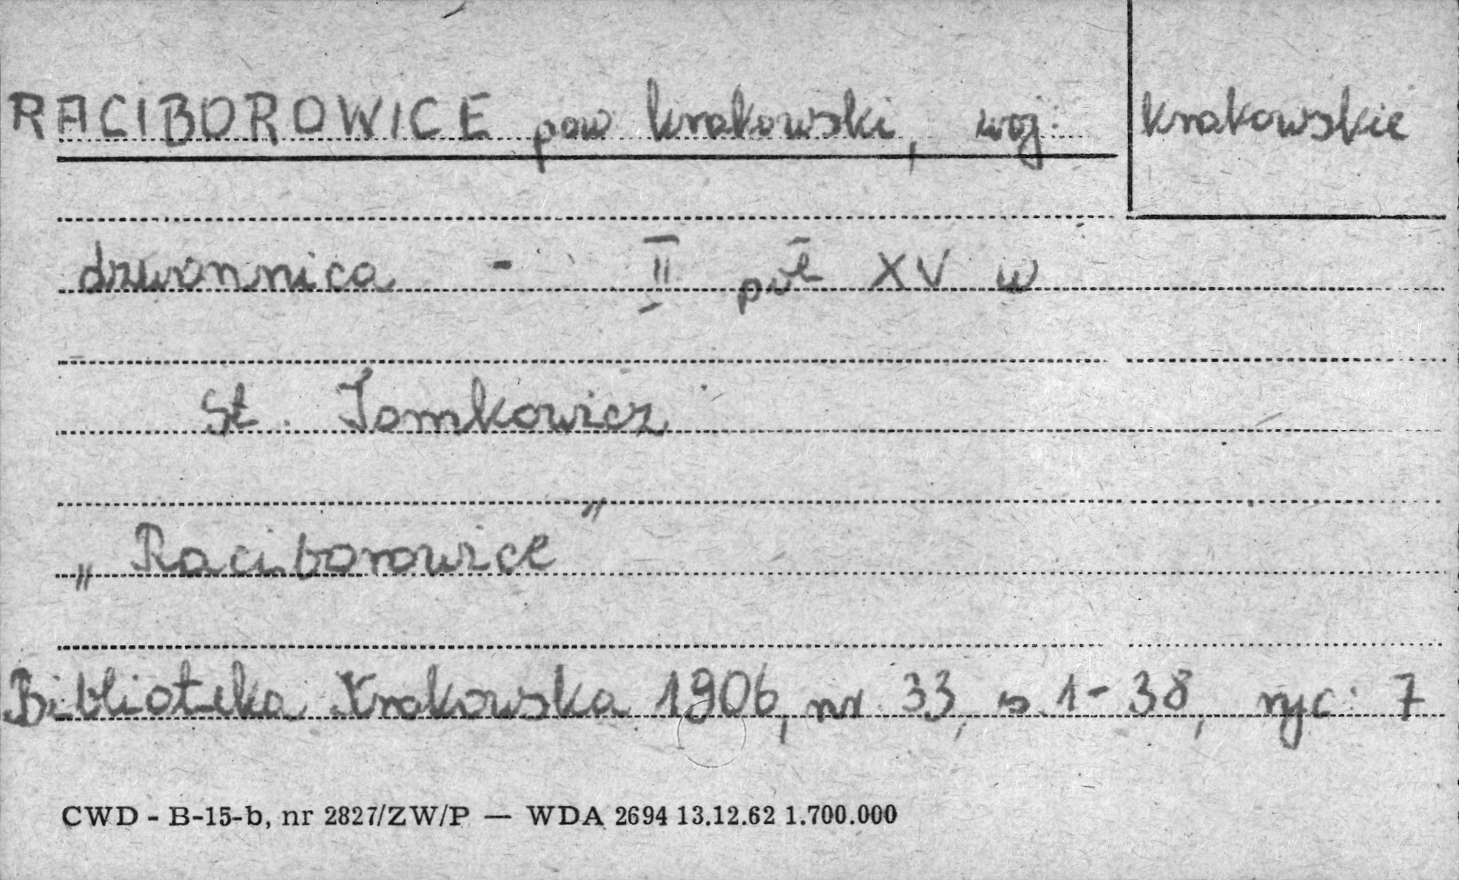 RACIBOROWICE pow krakowski, woj. krakowskie
dzwonnica - II poł XV w
St. Tomkowicz
„Raciborowice"
Biblioteka Krakowska 1906, nr 33, s. 1-38, ryc. 7
CWD - B-15-b, nr 2827/ZW/P — WDA 2694 13.12.62 1.700.000